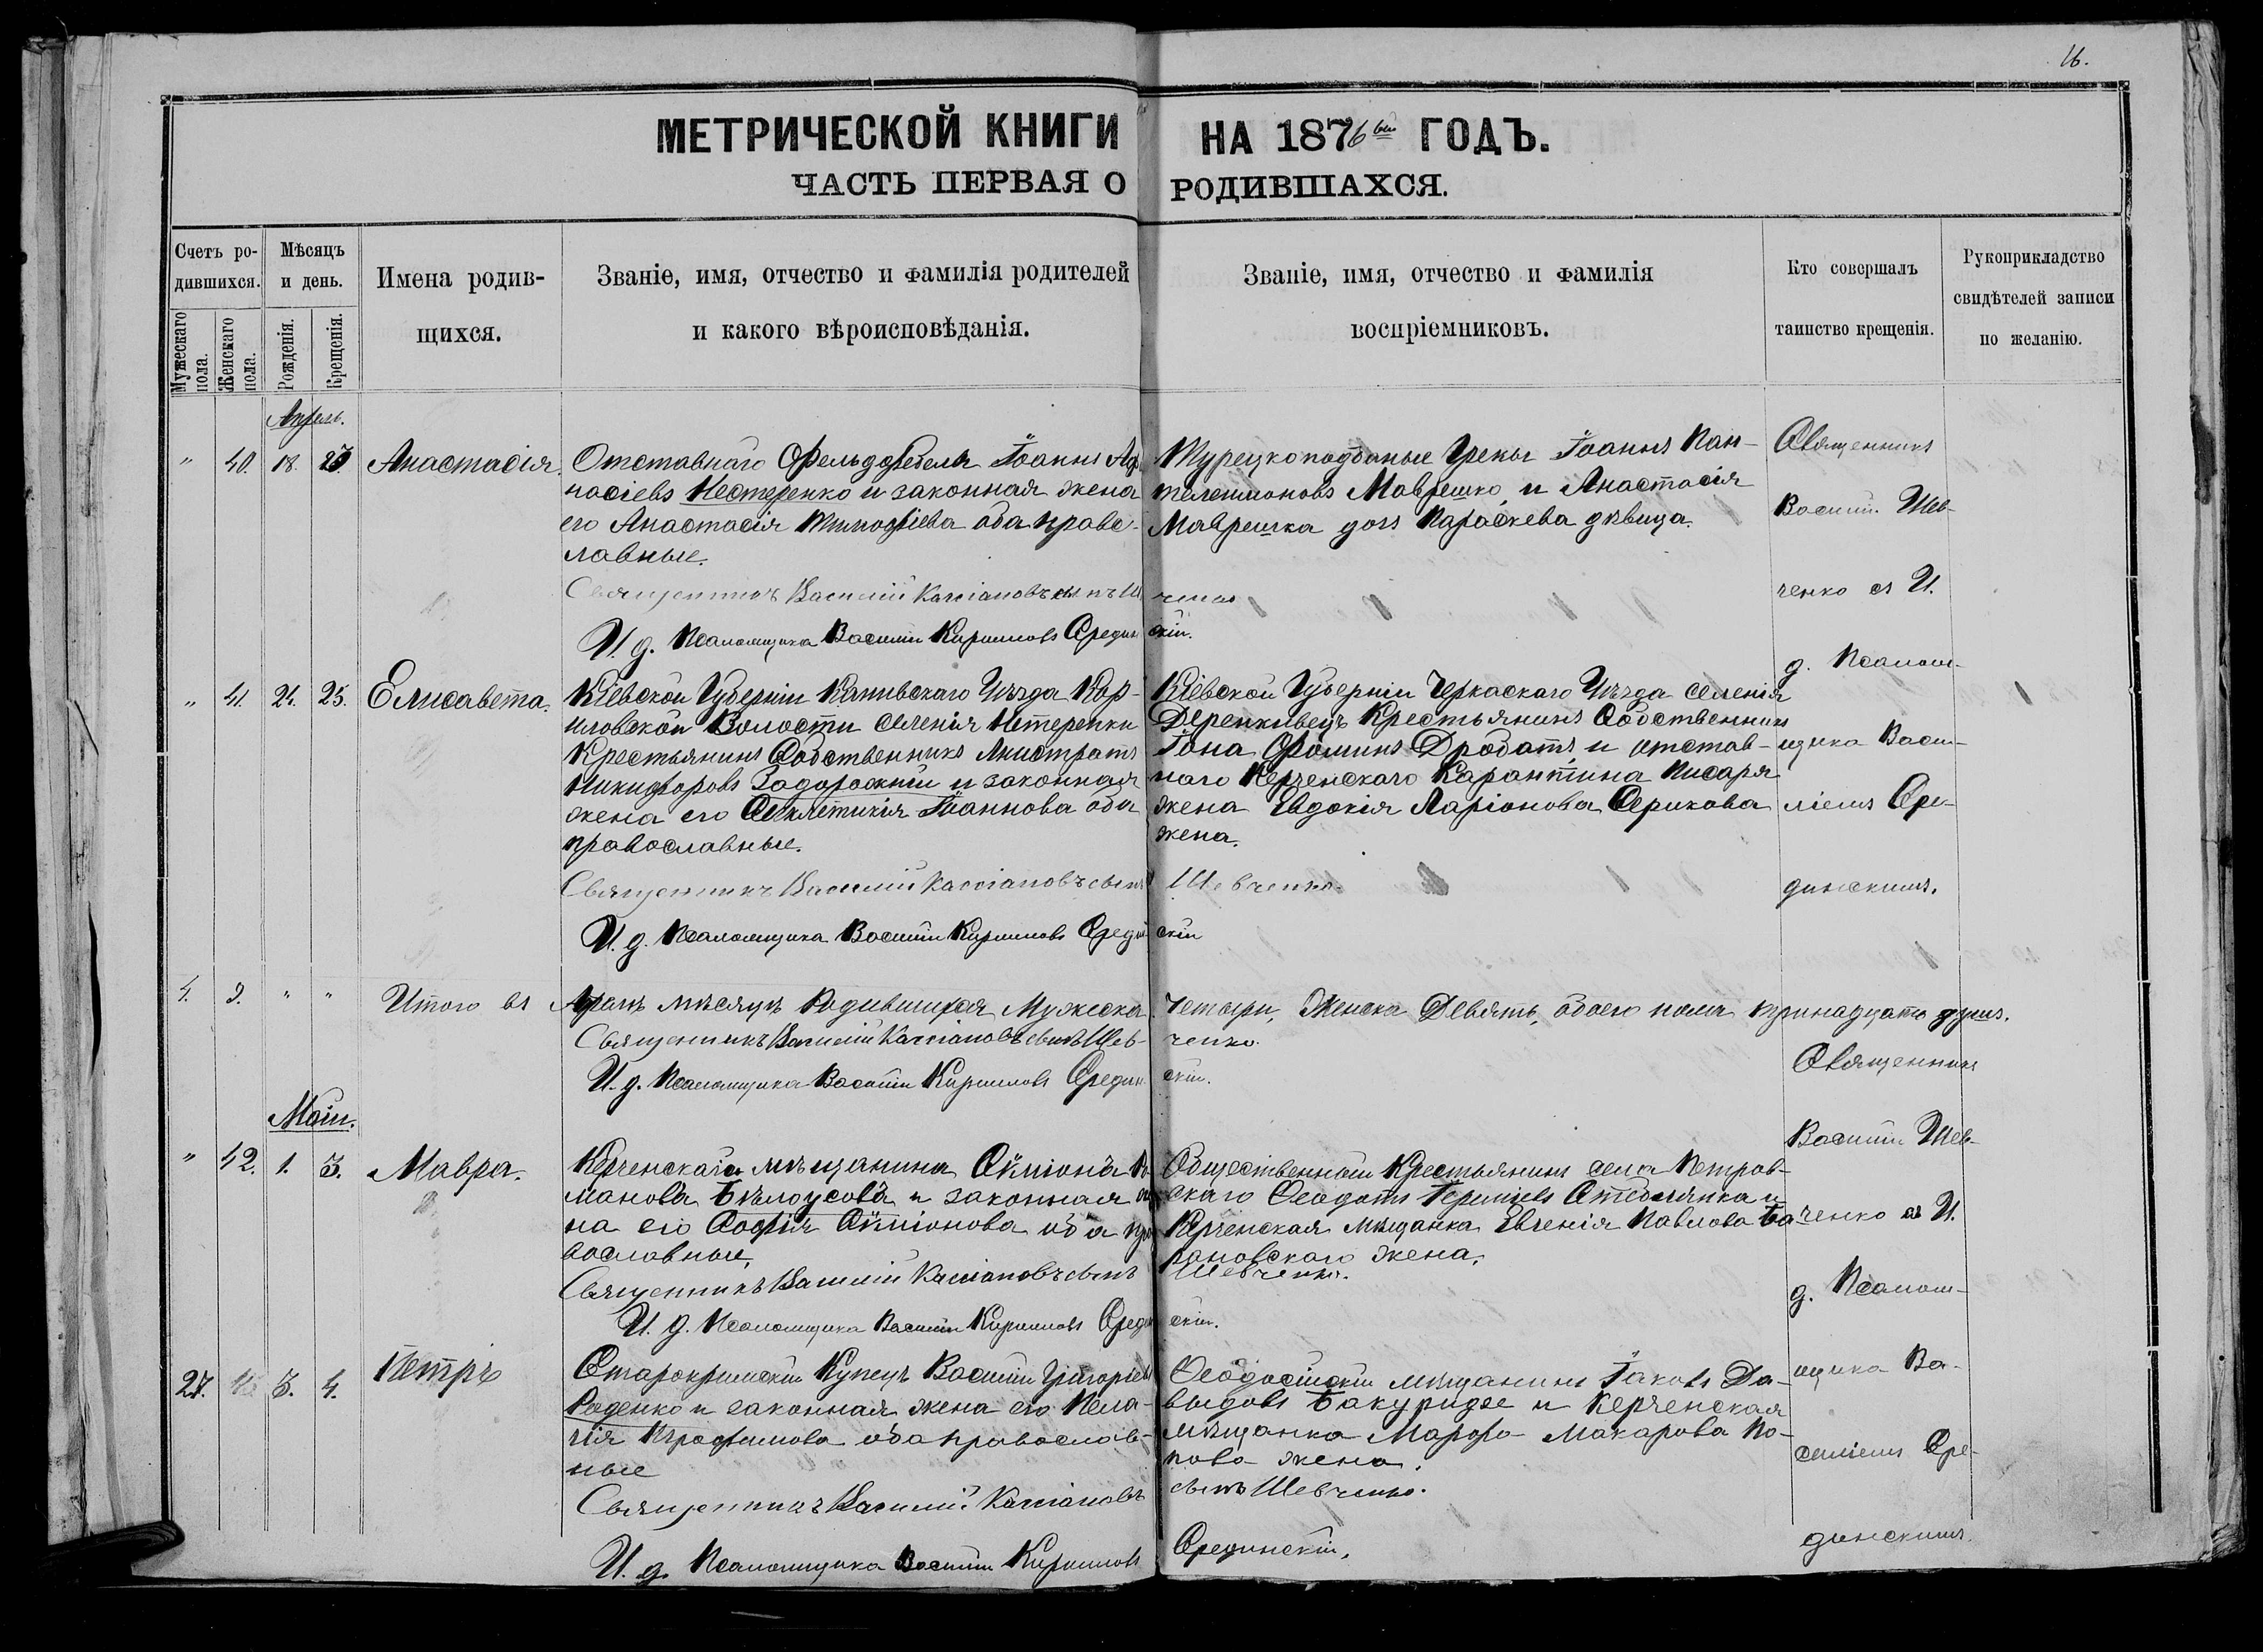 16.
МЕТРИЧЕСКОЙ КНИГИ НА 1876й ГОДЪ.
ЧАСТЬ ПЕРВАЯ О РОДИВШИХСЯ.
Счетъ ро-
дившихся.
Мужескаго пола.
Женскаго пола.
Мѣсяцъ
и день.
Рожденія.
Крещенія.
Имена родив-
щихся.
Званіе, имя, отчество и фамилія родителей
и какого вѣроисповѣданія.
Званіе, имя, отчество и фамилія
воспріемниковъ.
Кто совершалъ
таинство крещенія.
Рукоприкладство
свидѣтелей записи
по желанію.
Апрель.
" 40. 18. 23 Анастасія
Отставнаго Фельдфебеля Іоаннъ Афа
насіевъ Нестеренко и законная жена
его Анастасія Тимофіева оба право-
славные.
Священникъ Василій Кассіановъ сынъ Ш
И. д. Псаломщика Василій Кирилловъ Средин
Турецкоподданые Греки Іоаннъ Пан-
телеимоновъ Маврешко и Анастасія
Маврешка дочь Параскева дѣвица.
ченко
скій.
Священникъ
Василій Шев-
ченко съ И.
д. Псалом-
щика Васи-
ліемъ Сре-
динскимъ.
" 41. 24. 25. Елисавета.
Кіевской Губерніи Каневскаго Уѣзда Кор-
ниловской Волости селенія Нетеренки
Крестьянинъ Собственникъ Листратъ
Никифоровъ Задорожній и законная
жена его Секлетикія Іоаннова оба
православные.
Священникъ Василій Кассіановъ сынъ
И. д. Псаломщика Василій Кирилловъ Средин
Кіевской Губерніи Черкаскаго Уѣзда селенія
Деренкивецъ Крестьянинъ Собственникъ
Іона Фоминъ Дробатъ и отстав-
наго Керченскаго Карантина Писаря
жена Евдокія Ларіонова Серикова
жена.
Шевченко.
скій
4. 9. " " Итого въ Апрелѣ мѣсяцѣ Родившихся Мужеска Четыри, Женска Девять, обоего пола тринадцать душъ.
Священникъ Василій Кассіановъ сынъ Шев-ченко.
И. д. Псаломщика Василій Кирилловъ Средин-скій.
Маіи.
" 42. 1. 3. Мавра.
Керченскаго мѣщанина Симіона Ро
манова Бѣлоусова и законная же
на его Софія Симіонова оба пра
вославные.
Священникъ Василій Кассіановъ сынъ
И. д. Псаломщика Василій Кирилловъ Средин
Общественный Крестьянинъ села Петров-
скаго Феодотъ Терентіевъ Стеблянка и
Керченская мѣщанка Евгенія Павлова Ба
рановскаго жена.
Шевченко.
скій.
Священникъ
Василій Шев-
ченко съ И.
д. Псалом-
щика Ва-
силіемъ Сре-
динскимъ.
27. 3. 4. Петръ
Старокримскій Купецъ Василій Григорьевъ
Роденко и законная жена его Пела-
гія Трофимова оба православ-
ные
Священникъ Василій Кассіановъ
И. д. Псаломщика Василій Кирилловъ
Феодосійскій мѣщанинъ Іаковъ Да-
выдовъ Бакуридзе и Керченская
мѣщанка Марфа Макарова По-
пова жена.
сынъ Шевченко.
Срединскій.